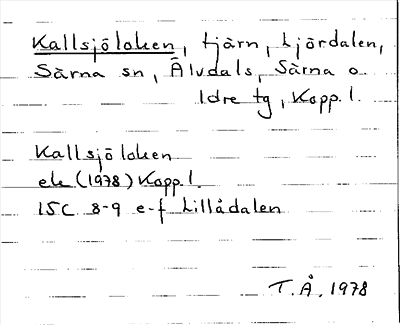 Kallsjöloken, tjärn, Ljördalen,
Särna sn, Älvdals, Särna o.
Idre tg, Kopp. l.
Kallsjöloken
ek (1978) Kopp. l.
15C 8-9 e-f Lillådalen
T.Å. 1978